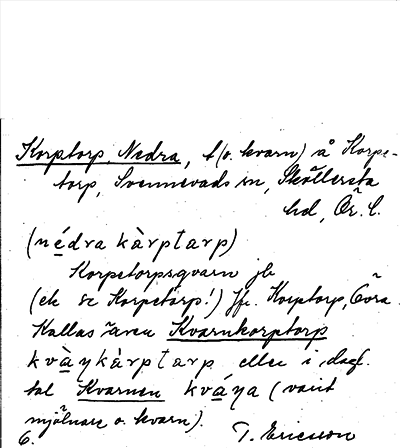 Korptorp, Nedra, t (o. kvarn) å Korpe-
torp, Svennevads sn, Sköllersta
hd, Ör. l.
(nédra kàrptarp)
Korpetorpsqvarn jb
(ek se Korpetorp!) Jfr. Korptorp, Övra.
Kallas även Kvarnkorptorp
kvàṇkàrptarp eller i dagl.
tal Kvarnen kváṇa (varit
mjölnare o. kvarn).
6. T. Ericsson